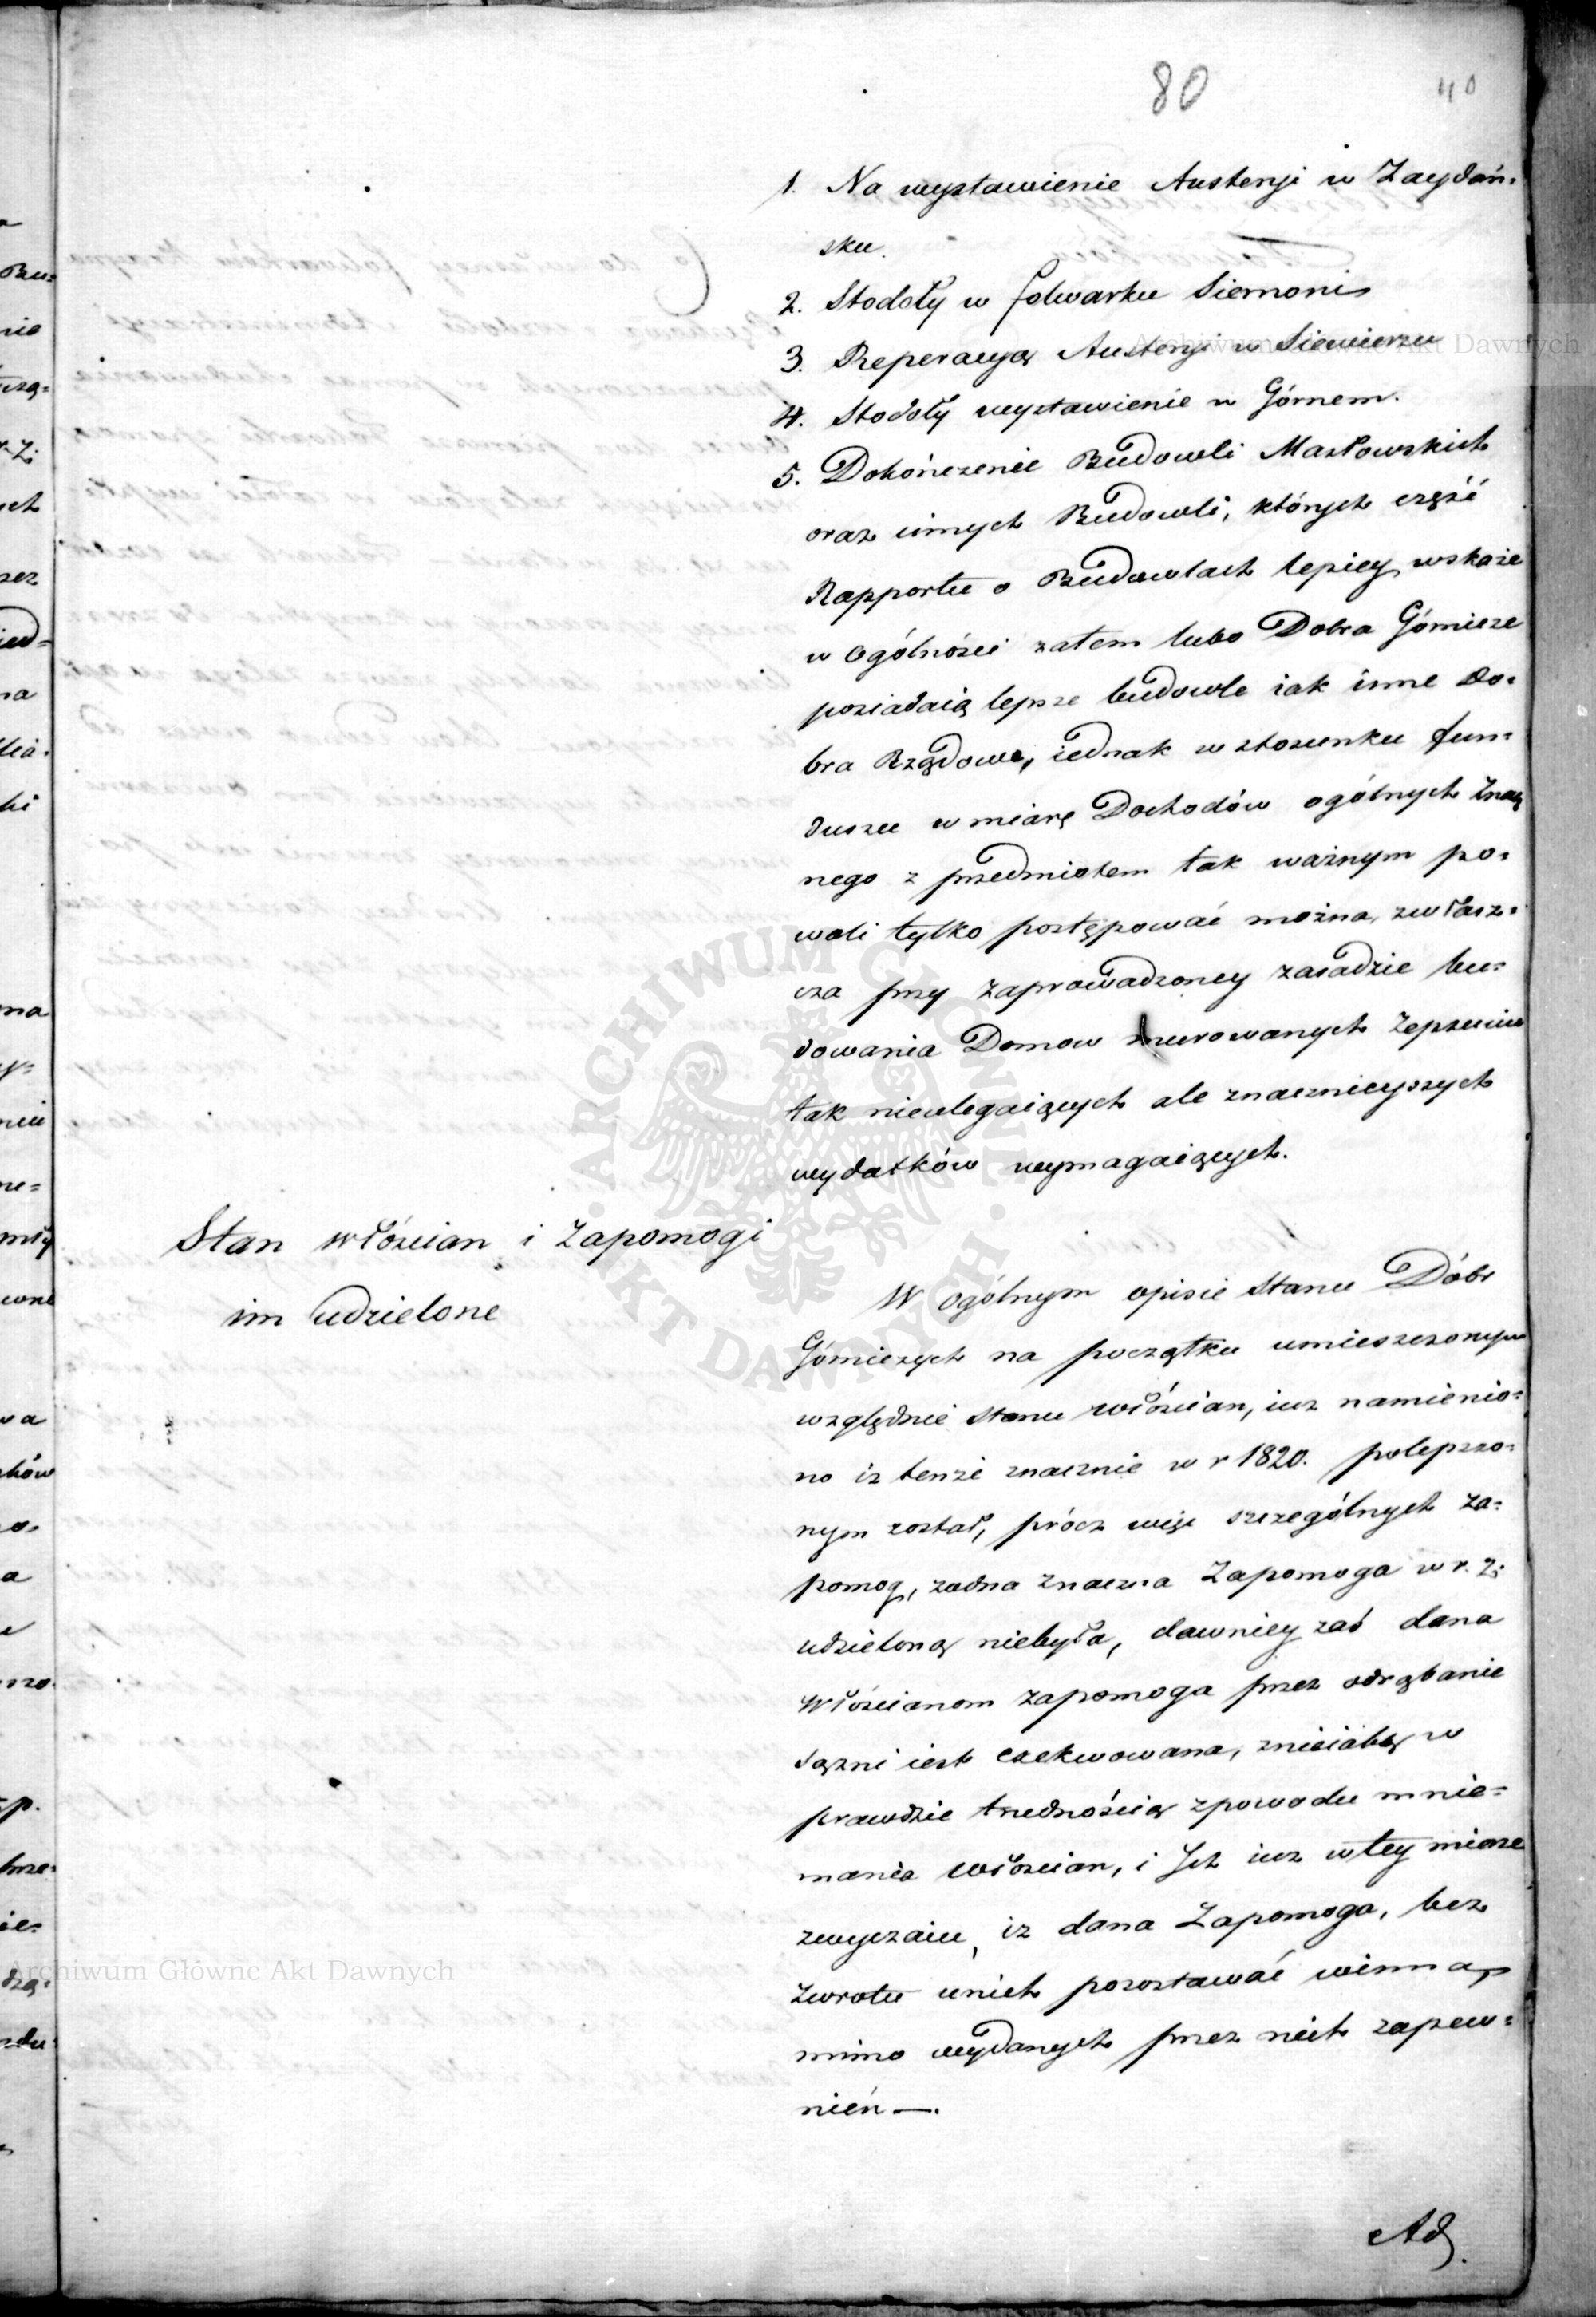 80
40
1. Na wystawienie Austeryi w Zagdań=
sku.
2. Stodoły w folwarku Siemoni
3. Reperacyą Austeryi w Siewierzu
4. Stodoły wystawienie w Górnem.
5. Dokończenie Budowli Masłowskich
oraz innych Budowli, których część
Rapportu o Budowlach lepiey wskaże
w ogólności zatem lubo Dobra Górnicze
posiadaią lepsze budowle iak inne Do=
bra Rządowe, iednak w stosunku fun=
duszu w miarę Dochodów ogólnych
nego z przedmiotem tak ważnym po=
woli tylko postępować można, zwłasz=
cza przy zaprowadzoney zasadzie bu=
dowania Domow murowanych zepsuciu
tak nieulegaiących ale znacznieyszych
wydatków wymagaiących.
Stan włościan i Zapomogi
im udzielone
W ogólnym opisie Stanu Dóbr
Górniczych na początku umieszczonym
względnie stanu włościan, iuz namienio=
no iz tenże znacznie w r 1820. polepszo=
nym został, prócz więc szczególnych za=
pomog, zadna znaczna Zapomoga w r. z;
udzieloną niebyła, dawniey zaś dana
Włościanom zapomoga przez odrąbanie
sążni iest exekwowana, z nieiaką w
prawdzie trudnością z powodu mnie=
mania włościan, i Ich iuz w tey mierze
zwyczaiu, iz dana Zapomoga, bez
zwrotu u nich pozostawać winna,
mimo wydanych przez nich zapew=
nień —.
Ad.
Archiwum Główne Akt Dawnych
Archiwum Główne Akt Dawnych
ARCHIWUM GŁÓWNE AKT DAWNYCH